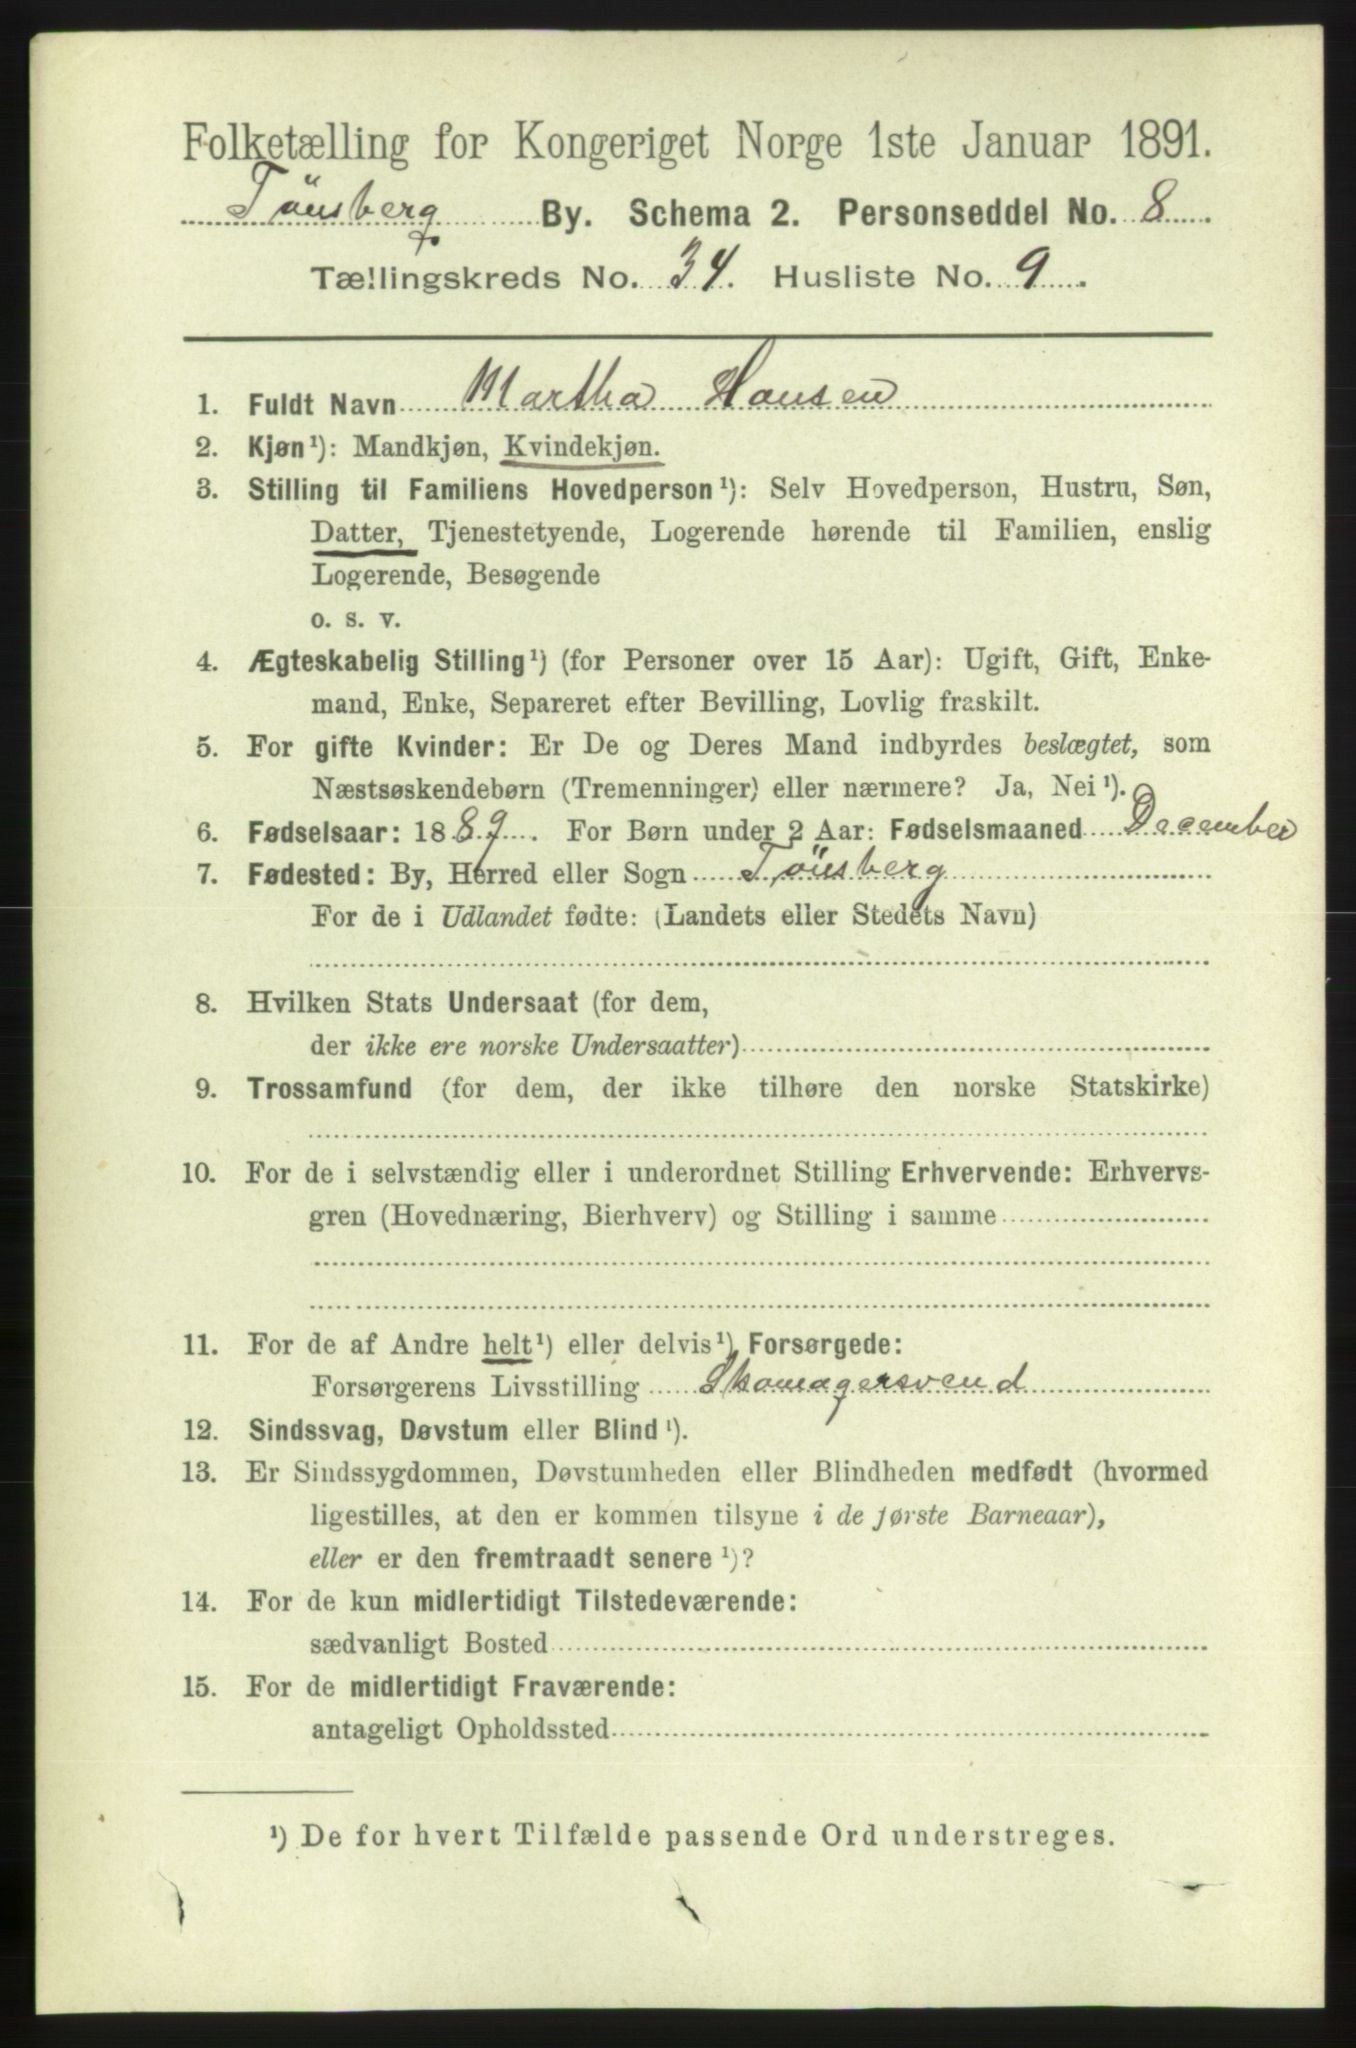 Folketælling for Kongeriget Norge 1ste Januar 1891.
Tönsberg By. Schema 2. Personseddel No. 8
Tællingskreds No. 34. Husliste No. 9.
1. Fuldt Navn Martha Hansen
2. Kjøn¹): Mandkjøn, Kvindekjøn.
3. Stilling til Familiens Hovedperson¹): Selv Hovedperson, Hustru, Søn,
Datter, Tjenestetyende, Logerende hørende til Familien, enslig
Logerende, Besøgende
o. s. v.
4. Ægteskabelig Stilling¹) (for Personer over 15 Aar): Ugift, Gift, Enke-
mand, Enke, Separeret efter Bevilling, Lovlig fraskilt.
5. For gifte Kvinder: Er De og Deres Mand indbyrdes beslægtet, som
Næstsøskendebørn (Tremenninger) eller nærmere? Ja, Nei¹).
6. Fødselsaar: 1889. For Børn under 2 Aar: Fødselsmaaned December
7. Fødested: By, Herred eller Sogn Tönsberg
For de i Udlandet fødte: (Landets eller Stedets Navn)
8. Hvilken Stats Undersaat (for dem,
der ikke ere norske Undersaatter)
9. Trossamfund (for dem, der ikke tilhøre den norske Statskirke)
10. For de i selvstændig eller i underordnet Stilling Erhvervende: Erhvervs-
gren (Hovednæring, Bierhverv) og Stilling i samme
11. For de af Andre helt¹) eller delvis¹) Forsørgede:
Forsørgerens Livsstilling Skomagersvend
12. Sindssvag, Døvstum eller Blind¹).
13. Er Sindssygdommen, Døvstumheden eller Blindheden medfødt (hvormed
ligestilles, at den er kommen tilsyne i de første Barneaar),
eller er den fremtraadt senere¹)?
14. For de kun midlertidigt Tilstedeværende:
sædvanligt Bosted
15. For de midlertidigt Fraværende:
antageligt Opholdssted
¹) De for hvert Tilfælde passende Ord understreges.